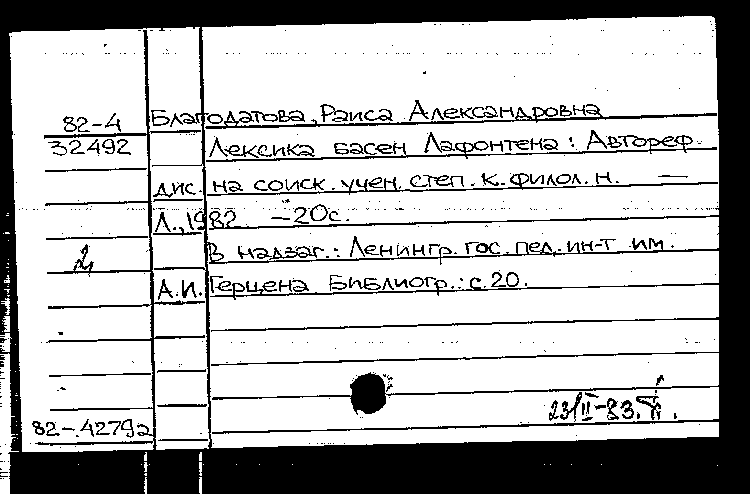 82-4 Благодатова, Раиса Александровна
32492 Лексика басен Лафонтена: Автореф.
дис. на соиск. учен. степ. к. филол. н. —
Л., 1982. — 20с.
В надзаг.: Ленингр. гос. пед. ин-т им.
А.И. Герцена Библиогр.: с. 20.
23/II-83.
82-42792